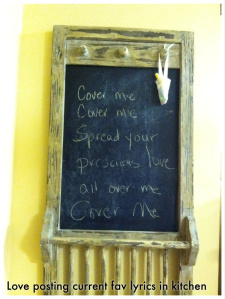 Cover me
Cover me
Spread your
prescious love
all over me
Cover Me
Love posting current fav lyrics in kitchen